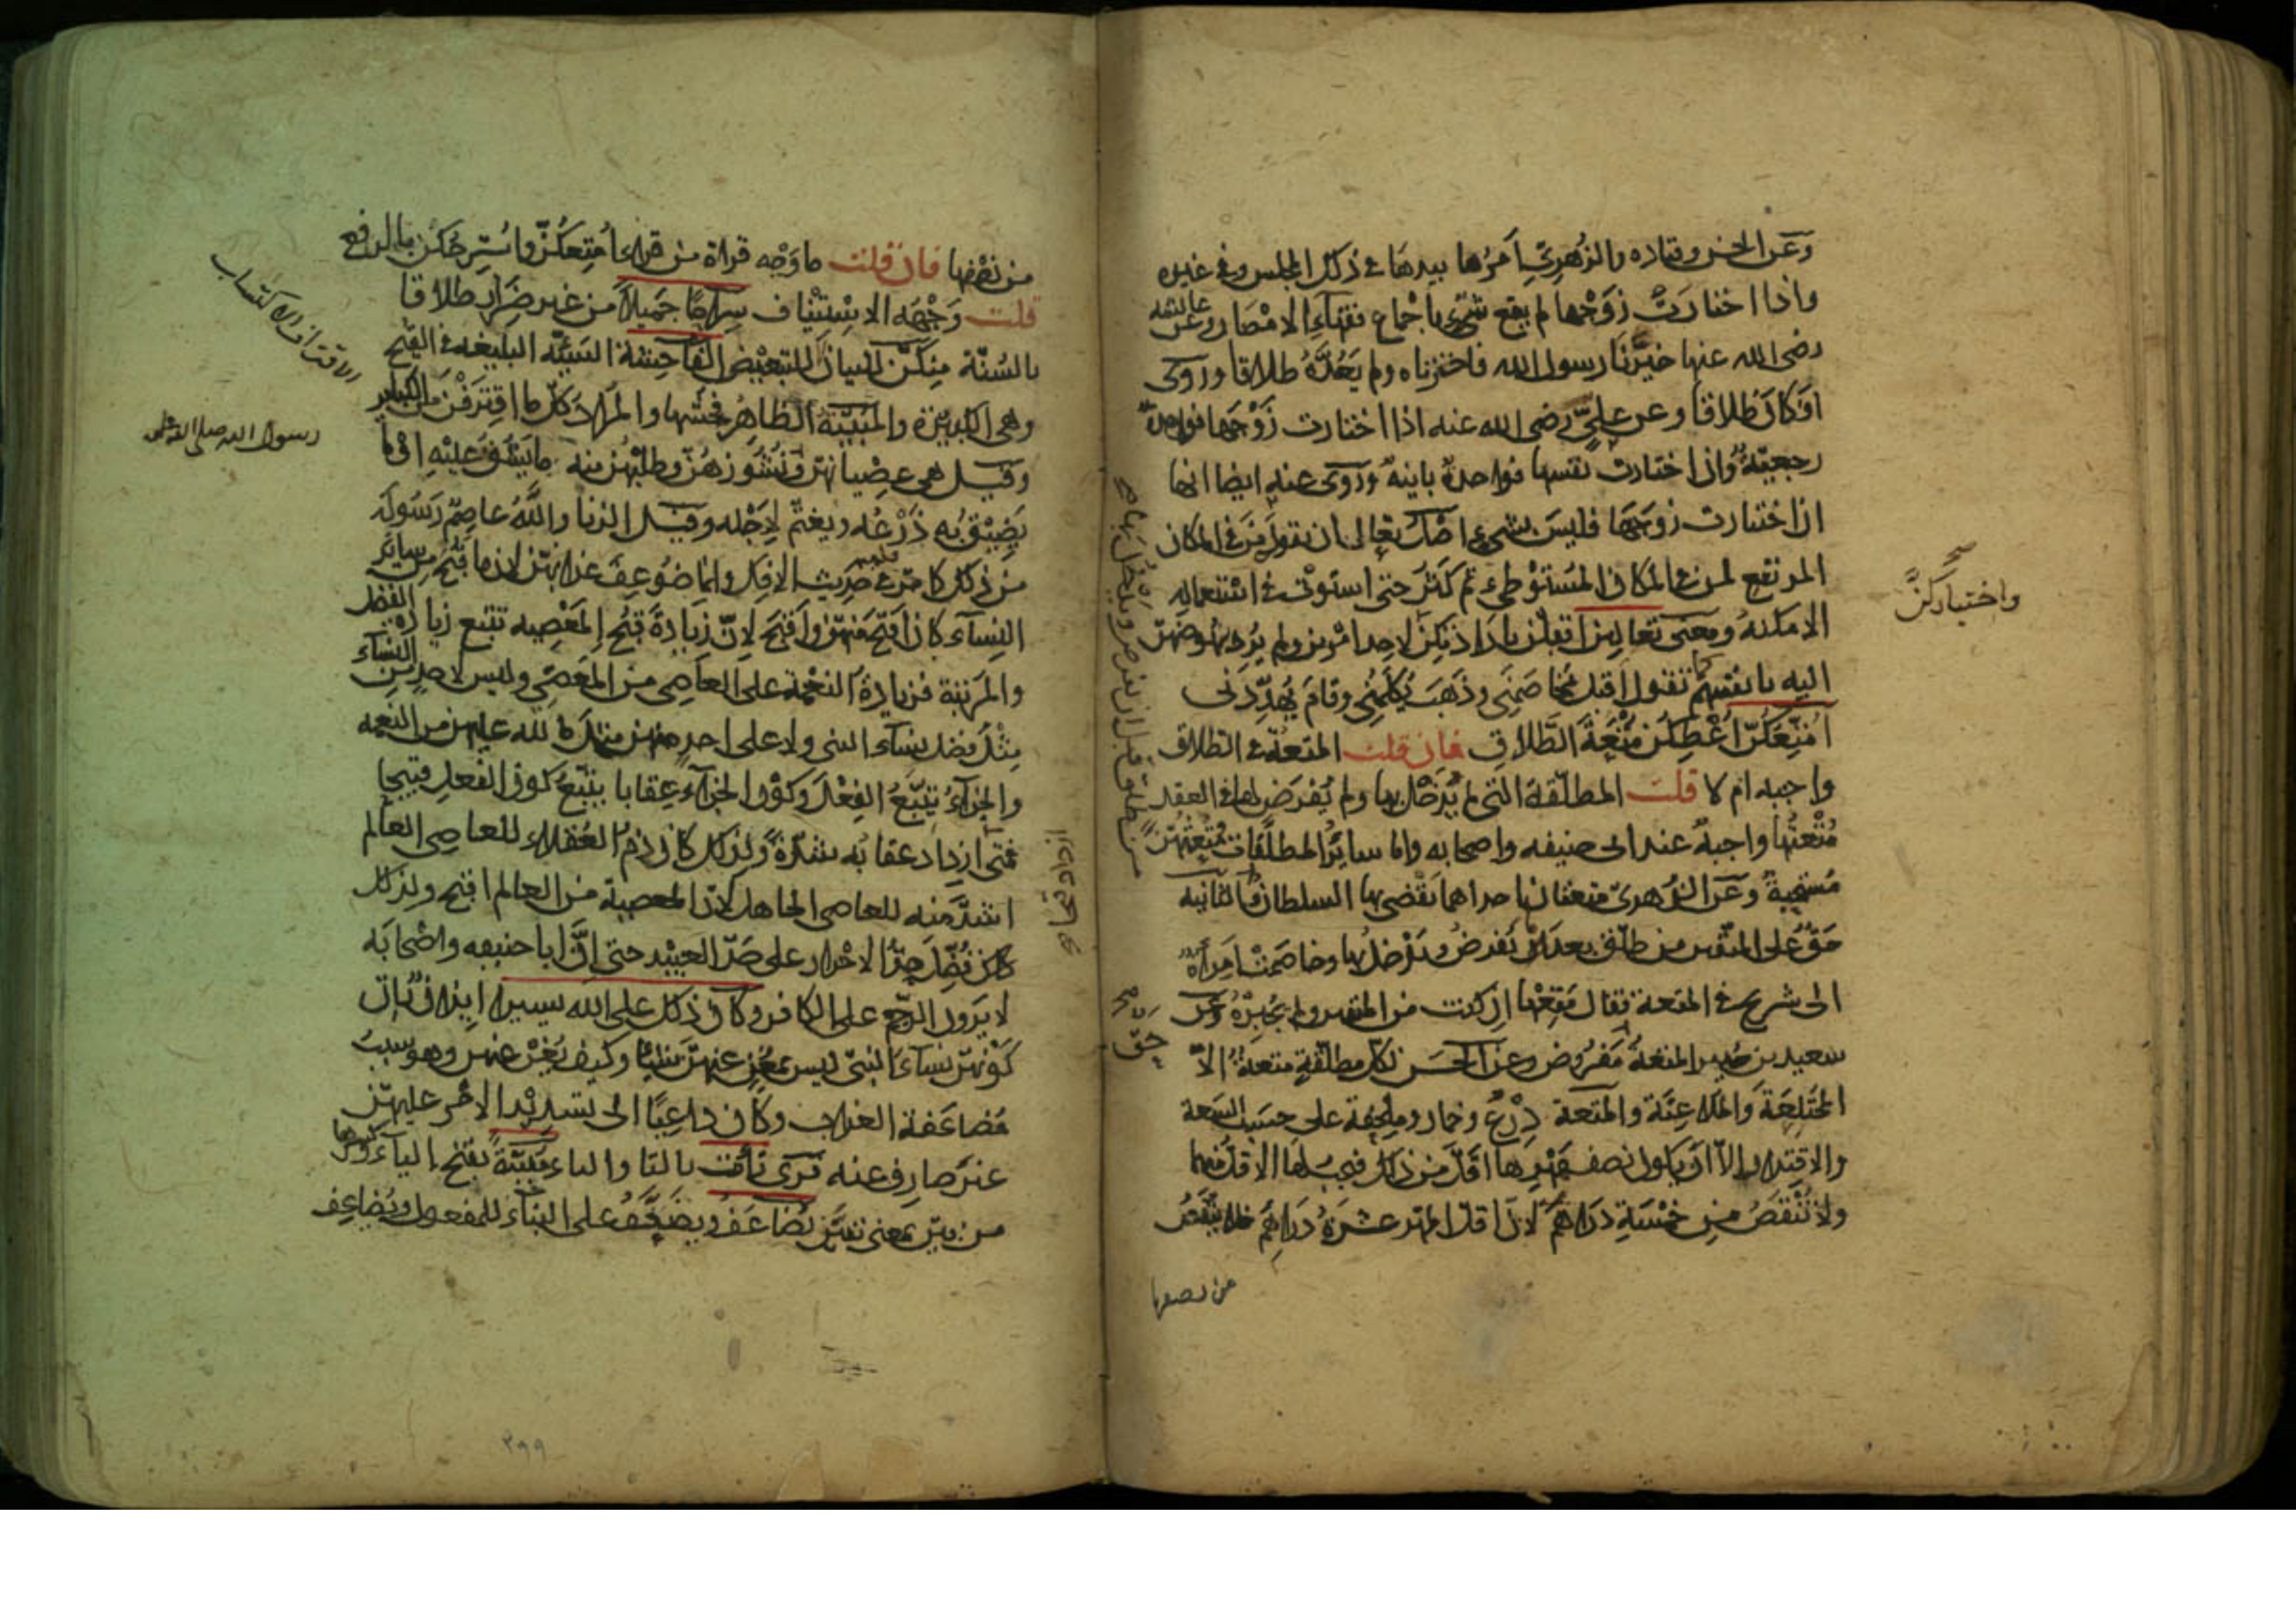 وعن الحسن وقتاده والزهري امرها بيدها في ذلك المجلس وفي غيره
واذا اختارت زوجها لم يقع شيء باجماع فقهاء الامصار وعن عائشة
رضى الله عنها خيرنا رسول الله فاخترناه ولم يعده طلاقا وروى
افكان طلاقا وعن علي رضى الله عنه اذا اختارت زوجها فواحدة
رجعية واذا اختارت نفسها فواحدة باينة وروى عنه ايضا انها
اذا اختارت زوجها فليس بشيء اصل تعال ان يقوله من في المكان
المرتفع لمن في المكان المستوطئ ثم كثر حتى استوت في استعماله
الامكنة ومعنى تعالين اقبلن بارادتكن لاحد امرين ولم يرد نهوضهن
اليه بانفسهن كما تقول اقبل يخاصمني وذهب يكلمني وقام يهددني
امتعكن اعطكن متعة الطلاق فان قلت المتعة في الطلاق
واجبه ام لا قلت المطلقة التي لم يدخل بها ولم يفرض لها في العقد
متعتها واجبة عند ابى حنيفه واصحابه واما سائر المطلقات فمتعتهن
مستحبة وعن الزهري متعتان احداهما يقضى بها السلطان والثانيه
حق على المتقين من طلق بعد ان يفرض ويدخل بها وخاصمت امرأة
الى شريح في المتعة فقال متعها ان كنت من المتقين ولم يجبره وعن
سعيد بن جبير المتعة حق مفروض وعن الحسن لكل مطلقة متعة الا
المختلعة والملاعنة والمتعة درع وخمار وملحفة على حسب السعة
والاقتار الا ان يكون نصف مهرها اقل من ذلك فيجب لها الاقل منهما
ولا تنقص من خمسة دراهم لان اقل المهر عشرة دراهم فلا ينقص
من نصفها
واختياركن
صح
من طلق قبل ان يفرض ويدخل بها صح
حق صح
من نصفها فان قلت ما وجه قراة من قراء امتعكن واسرحكن بالرفع
قلت وجهه الاستئناف سراحا جميلا من غير ضرار طلاقا
بالسنة منكن للبيان لا للتبعيض الفاحشة السيئه البليغه في القبح
وهى الكبيرة والمبينة الظاهر فحشها والمراد كل ما اقترفن من الكباير
وقيل هى عصيانهن ونشوزهن وطلبهن منه ما يشق عليه او ما
يضيق به ذرعه ويغتم لاجله وقيل الزنا والله عاصم رسوله
من ذلك كما مر في حديث الافك وانما ضوعف عذابهن لان ما قبح من سائر
النساء كان اقبح منهن واقبح لان زيادة قبح المعصيه تتبع زيادة الفضل
والمرتبة فزيادة النعمة على العاصى من المعصي وليس لاحد من النساء
مثل فضل نساء النبى ولا على احد منهن مثل ما لله عليهن من النعمه
والجزاء يتبع الفعل وكون الجزاء عقابا يتبع كون الفعل قبيحا
فمتى ازداد عقابه شدة ولذلك كان ذم العقلاء للعاصى العالم
اشد منه للعاصى الجاهل لان المعصية من العالم اقبح ولذلك
كان فضل حد الاحرار على حد العبيد حتى ان ابا حنيفه واصحابه
لا يرون الرجم على الكافر وكان ذلك على الله يسيرا ايذان بان
كونهن نساء النبى ليس بمغن عنهن شيئا وكيف يغن عنهن وهو سبب
مضاعفة العذاب وكان داعيا الى تشديد الامر عليهن
غير صارف عنه قرى تأت بالتا والياء مبينة بفتح الياء وكسرها
من بين بمعنى تبين يضاعف ويضعف على البناء للمفعول ويضاعف
الاقتراف الاكتساب
رسول الله صلى الله عليه
ازداد قبحا صح
٣٩٩